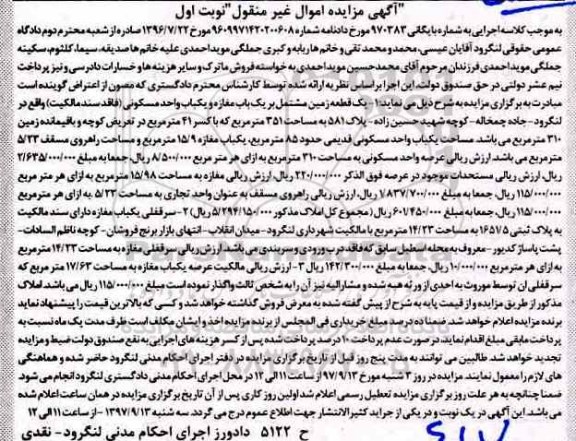 "آگهی مزایده اموال غیر منقول"نوبت اول
به موجب کلاسه اجرایی به شماره بایگانی ۹۷۰۳۸۳ مورخ دادنامه شماره ۹۶۰۹۹۷۱۴۲۰۲۰۰۶۰۸ مورخ ۱۳۹۶/۷/۲۲ صادره از شعبه محترم دوم دادگاه
عمومی حقوقی لنگرود آقایان عیسی، محمد و محمد تقی و خانم ها ربابه و کبری جملگی موید احمدی علیه خانم ها صدیقه، سیما، کلثوم، سکینه
جملگی موید احمدی فرزندان مرحوم آقای محمد حسین موید احمدی به خواسته فروش ماترک و سایر هزینه ها و خسارات دادرسی و نیز پرداخت
نیم عشر دولتی در حق صندوق دولت، این اجرا بر اساس نظریه ارائه شده توسط کارشناس محترم دادگستری که مصون از اعتراض گردیده است
مبادرت به برگزاری مزایده به شرح ذیل می نماید: ۱- یک قطعه زمین مشتمل بر یک باب مغازه و یکباب واحد مسکونی (فاقد سند مالکیت) واقع در
لنگرود - جاده چمخاله - کوچه شهید حسین زاده - پلاک ۵۸۱ به مساحت ۳۵۱ مترمربع که با کسر ۴۱ مترمربع در تعریض کوچه و باقیمانده زمین
۳۱۰ مترمربع می باشد. مساحت یکباب واحد مسکونی قدیمی حدود ۸۵ مترمربع، یکباب مغازه ۱۵/۹ مترمربع و مساحت راهروی مسقف ۵/۲۳
مترمربع می باشد. ارزش ریالی عرصه واحد مسکونی به مساحت ۳۱۰ مترمربع به ازای هر متر مربع ۸/۵۰۰/۰۰۰ ریال، جمعا به مبلغ ۲/۶۳۵/۰۰۰/۰۰۰
ریال، ارزش ریالی مستحدثات موجود در عرصه فوق الذکر ۲۲۰/۰۰۰/۰۰۰ ریال، ارزش ریالی مغازه به مساحت ۱۵/۹۸ مترمربع به ازای هر متر مربع
۱۱۵/۰۰۰/۰۰۰ ریال، جمعا به مبلغ ۱/۸۳۷/۷۰۰/۰۰۰ ریال، ارزش ریالی راهروی مسقف به عنوان واحد تجاری به مساحت ۵/۲۳ به ازای هر متر مربع
۱۱۵/۰۰۰/۰۰۰ ریال، جمعا به مبلغ ۶۰۱/۴۵۰/۰۰۰ ریال (مجموع کل املاک مذکور ۵/۲۹۴/۱۵۰/۰۰۰ ریال) ۲- سرقفلی یکباب مغازه دارای سند مالکیت
به پلاک ثبتی ۱۶۵۷/۵ به مساحت ۱۴/۲۳ مترمربع با مالکیت شهرداری لنگرود - میدان انقلاب - انتهای بازار برنج فروشان - کوچه ناظم السادات -
پشت پاساژ کدیور - معروف به محله اسطبل سابق که فاقد درب ورودی و سربندی می باشد. ارزش ریالی سرقفلی مغازه به مساحت ۱۴/۲۳ مترمربع
به ازای هر مترمربع ۱۰/۰۰۰/۰۰۰ ریال، جمعا به مبلغ ۱۴۲/۳۰۰/۰۰۰ ریال ۳- ارزش ریالی مالکیت عرصه یکباب مغازه به مساحت ۱۷/۶۳ مترمربع که
سرقفلی آن توسط موروث به احدی از ورثه هبه شده و مشارالیه نیز آن را به شخص ثالث واگذار نموده است مبلغ ۱۱۵/۰۰۰/۰۰۰ ریال می باشد. املاک
مذکور از طریق مزایده و از قیمت پایه به شرح از پیش گفته شده به معرض فروش گذاشته خواهد شد و کسی که بالاترین قیمت را پیشنهاد نماید
برنده مزایده اعلام خواهد شد. ضمنا ده درصد مبلغ خریداری فی المجلس از برنده مزایده اخذ و ایشان مکلف است ظرف مدت یک ماه نسبت به
پرداخت مابقی مبلغ اقدام نماید، در صورت عدم پرداخت ۱۰ درصد پرداخت شده پس از کسر هزینه های اجرایی به نفع صندوق دولت ضبط و مزایده
تجدید خواهد شد. طالبین می توانند به مدت پنج روز قبل از تاریخ برگزاری مزایده در دفتر اجرای احکام مدنی لنگرود حاضر شده و هماهنگی
های لازم را معمول نمایند. مزایده در روز ۳ شنبه مورخ ۹۷/۹/۱۳ از ساعت ۱۱ الی ۱۲ در محل اجرای احکام مدنی دادگستری لنگرود انجام می شود.
ضمنا چنانچه به هر علت روز برگزاری مزایده تعطیل رسمی اعلام شد اولین روز کاری پس از آن تاریخ برگزاری مزایده در همان ساعت اعلام شده
می باشد. این آگهی در یک نوبت و در یکی از جراید کثیر الانتشار جهت اطلاع عموم درج می گردد. سه شنبه ۱۳۹۷/۹/۱۳ - از ساعت ۱۱ الی ۱۲
ح ۵۱۲۲ دادورز اجرای احکام مدنی لنگرود - نقدی